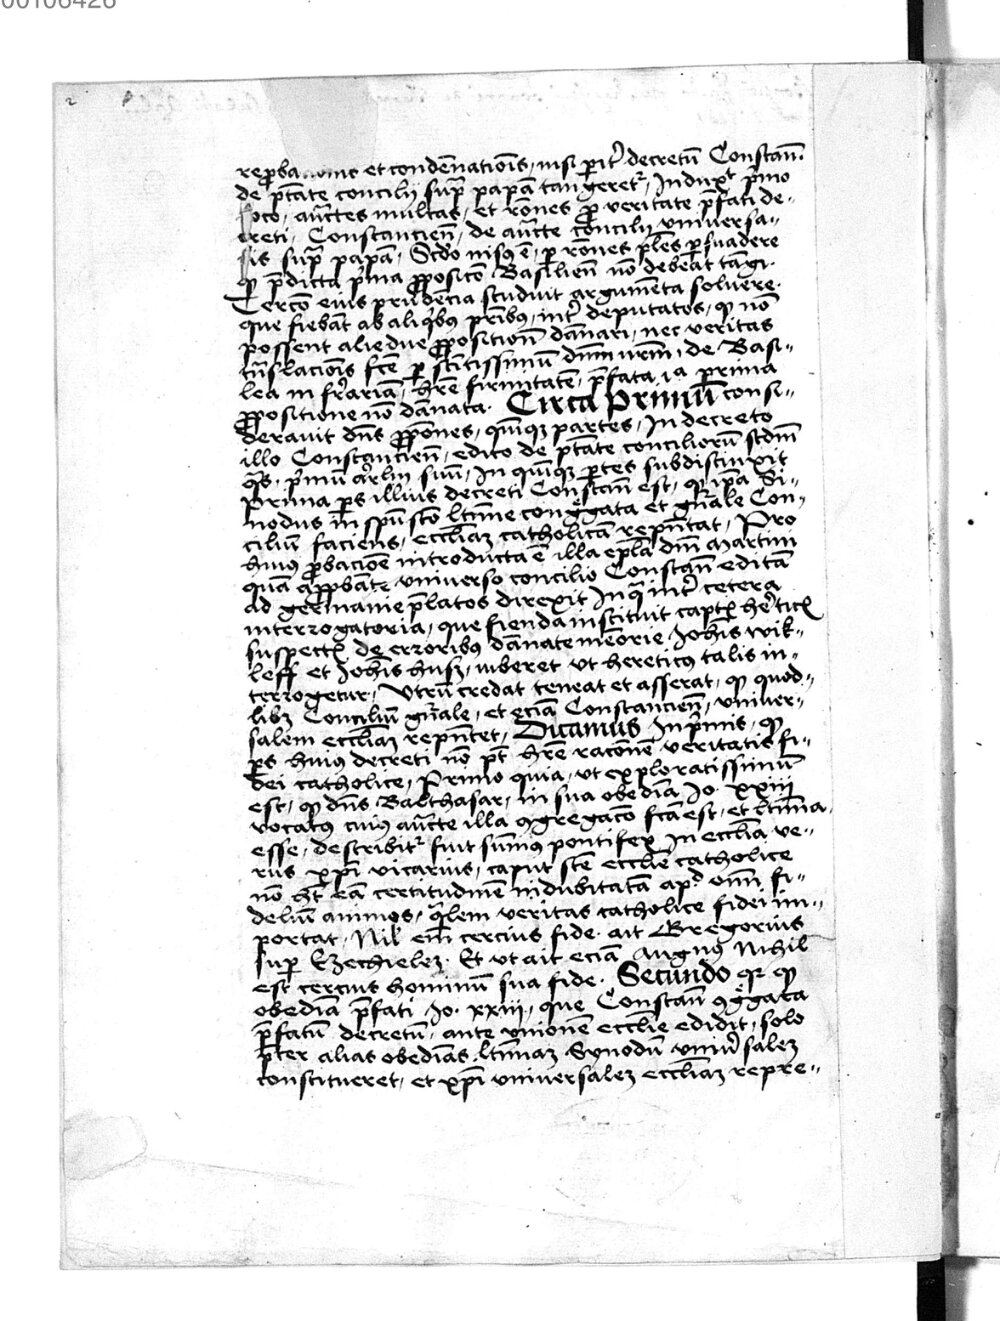 00106426
2
rep̄ba et condēnationis, nisi p̄it' decretū Constan̄.
de p̄tate concilij sup̄ papā tangeret², Induxit p̄mo
loco, auc̄tes multas, et rōnes p̄ veritate p̄fati de-
creti, Constancien̄, de auc̄te concilij vniuersa-
lis sup̄ papā, Scd̄o nisus ē, p̄ rōnes p̄les p̄suadere
qp p̄dicta p̄ma p̄positō Basilien̄ nō debeat tāgi.
Tercō eius prudēcia studuit argumēta soluere.
que fiebāt ab aliq̄bus pr̄ibus, int' deputatos, qp nō
possent alie due p̄positiōn dānari, nec veritas
tn̄slaciōis fc̄e p̄ sc̄tissimū dn̄m nr̄m, de Basi-
lea in fr̄ariā, hr̄e firmitatē, p̄fata ia prima
p̄positione nō dānata. Circa Primū consi-
derauit dn̄s p̄pōnes, quīq3 partes, In decreto
illo Constancien̄, edito de p̄tate conciliorū scd̄m
q̄s, p̄mū ar̄lm suū, In quīq3 p̄tes subdistinxit
Prima p̄s illius decreti Constan̄ est, qp ip̄a Si-
nodus in sp̄u sc̄to l̄time congr̄gata et gn̄ale Con-
ciliū faciens, eccl̄iam catholicā rep̄ntat, Pro
huius p̄bacione introducta ē illa ep̄la dn̄i Martini
quā app̄bāte vniuerso concilio Constan̄ editā
ad germanie p̄latos direxit In q̄ int' cetera
interrogatoria, que fienda instituit capt' her̄tic'
suspect' de erroribus dānate mēorie Joh̄is wik-
leff et Joh̄is husz, iuberet vt hereticus talis in-
terrogetur, Vtrū credat teneat et asserat, qp quod-
lib3 Conciliū gn̄ale, et eciā Constancien̄, vniuer-
salem eccl̄iam rep̄ntet, Dicamus In p̄mis, qp
p̄s huius decreti nō p̄t hr̄e racōnē veritatis fi-
dei catholice, Primo quia, vt exploratissimū
est, qp dn̄s Balthasar, in sua obediā Jo xxiii
vocatus cuius auc̄te illa gregacō fc̄a est, et l̄tima
esse, describit² fuit sumus pontifex In eccl̄ia ve-
rus xp̄i vicarius, caput sc̄te eccl̄ie catholice
nō h̄t eā certitudinē indubitatā apd' oīm fi-
deliū animos, q̄lem veritas catholice fidei im-
portat, Nil' em̄ cercius fide. ait Gregorius
sup̄ Ezechielem. Et vt ait eciā Augn̄us Nihil
est cercius hominū sua fide. Secundo qr qp
obediā p̄fati Jo. xxiii, que Constan̄ 9gr̄gata
p̄fatū decretū, ante vnionē eccl̄ie edidit, solo
p̄ter alias obediās l̄timā Synodū vniu'salem
constitueret, et xp̄i vniuersalem eccl̄iam repre-